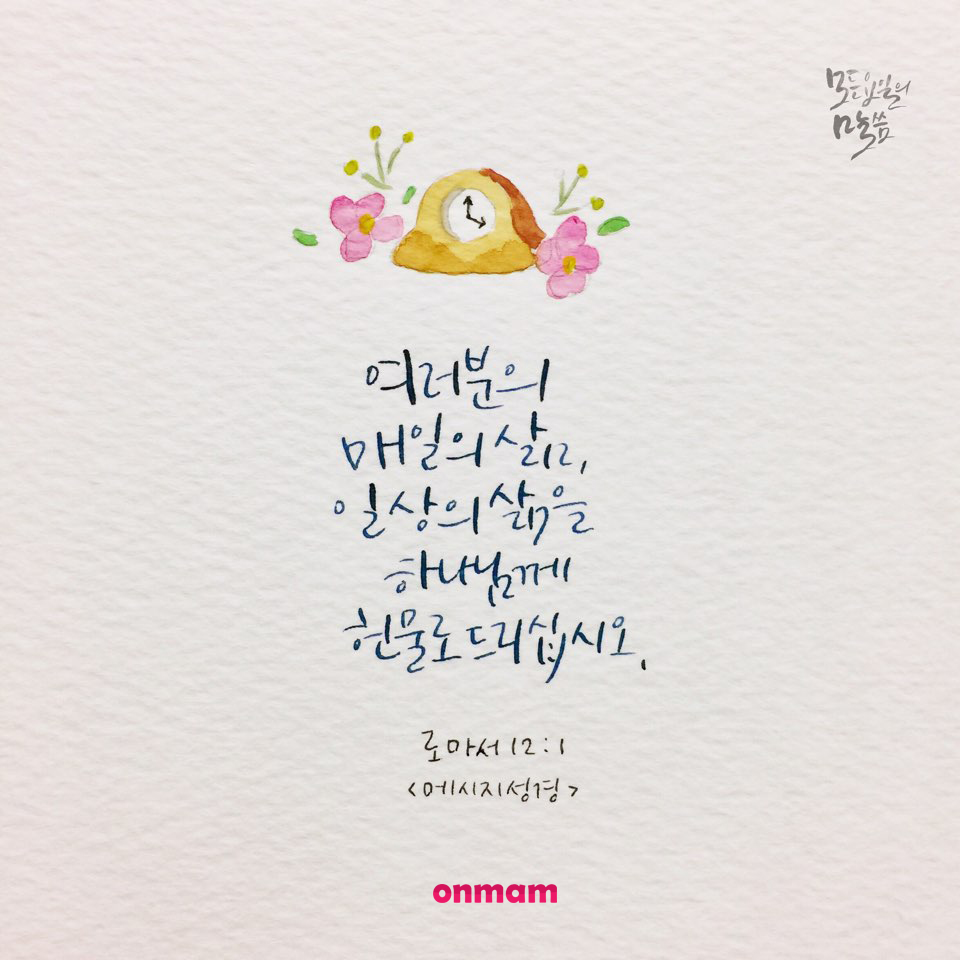 말씀
여러분의
매일의 삶,
일상의 삶을
하나님께
헌물로 드리십시오.
로마서 12:1
<메시지성경>
onmam